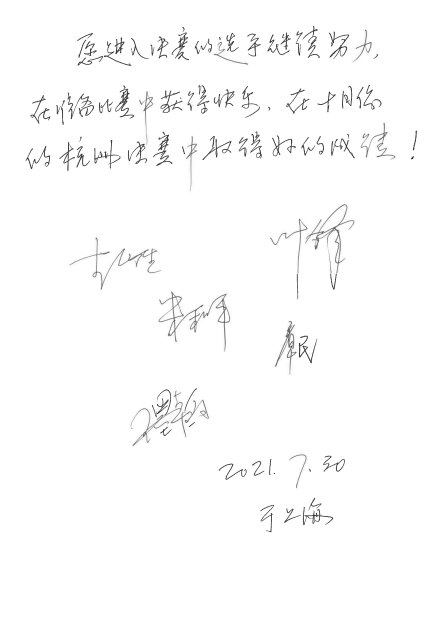 愿进入决赛的选手继续努力，
在准备比赛中获得快乐，在十月份
的杭州决赛中取得好的成绩！
叶锋
2021.7.30
于上海